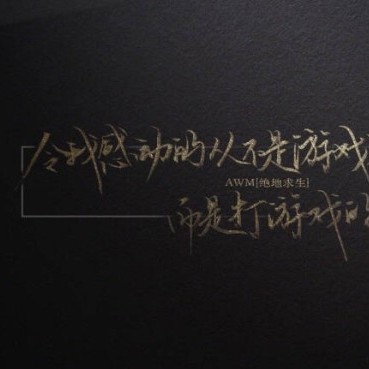 令我感动的从不是游戏
AWM[绝地求生]
而是打游戏的